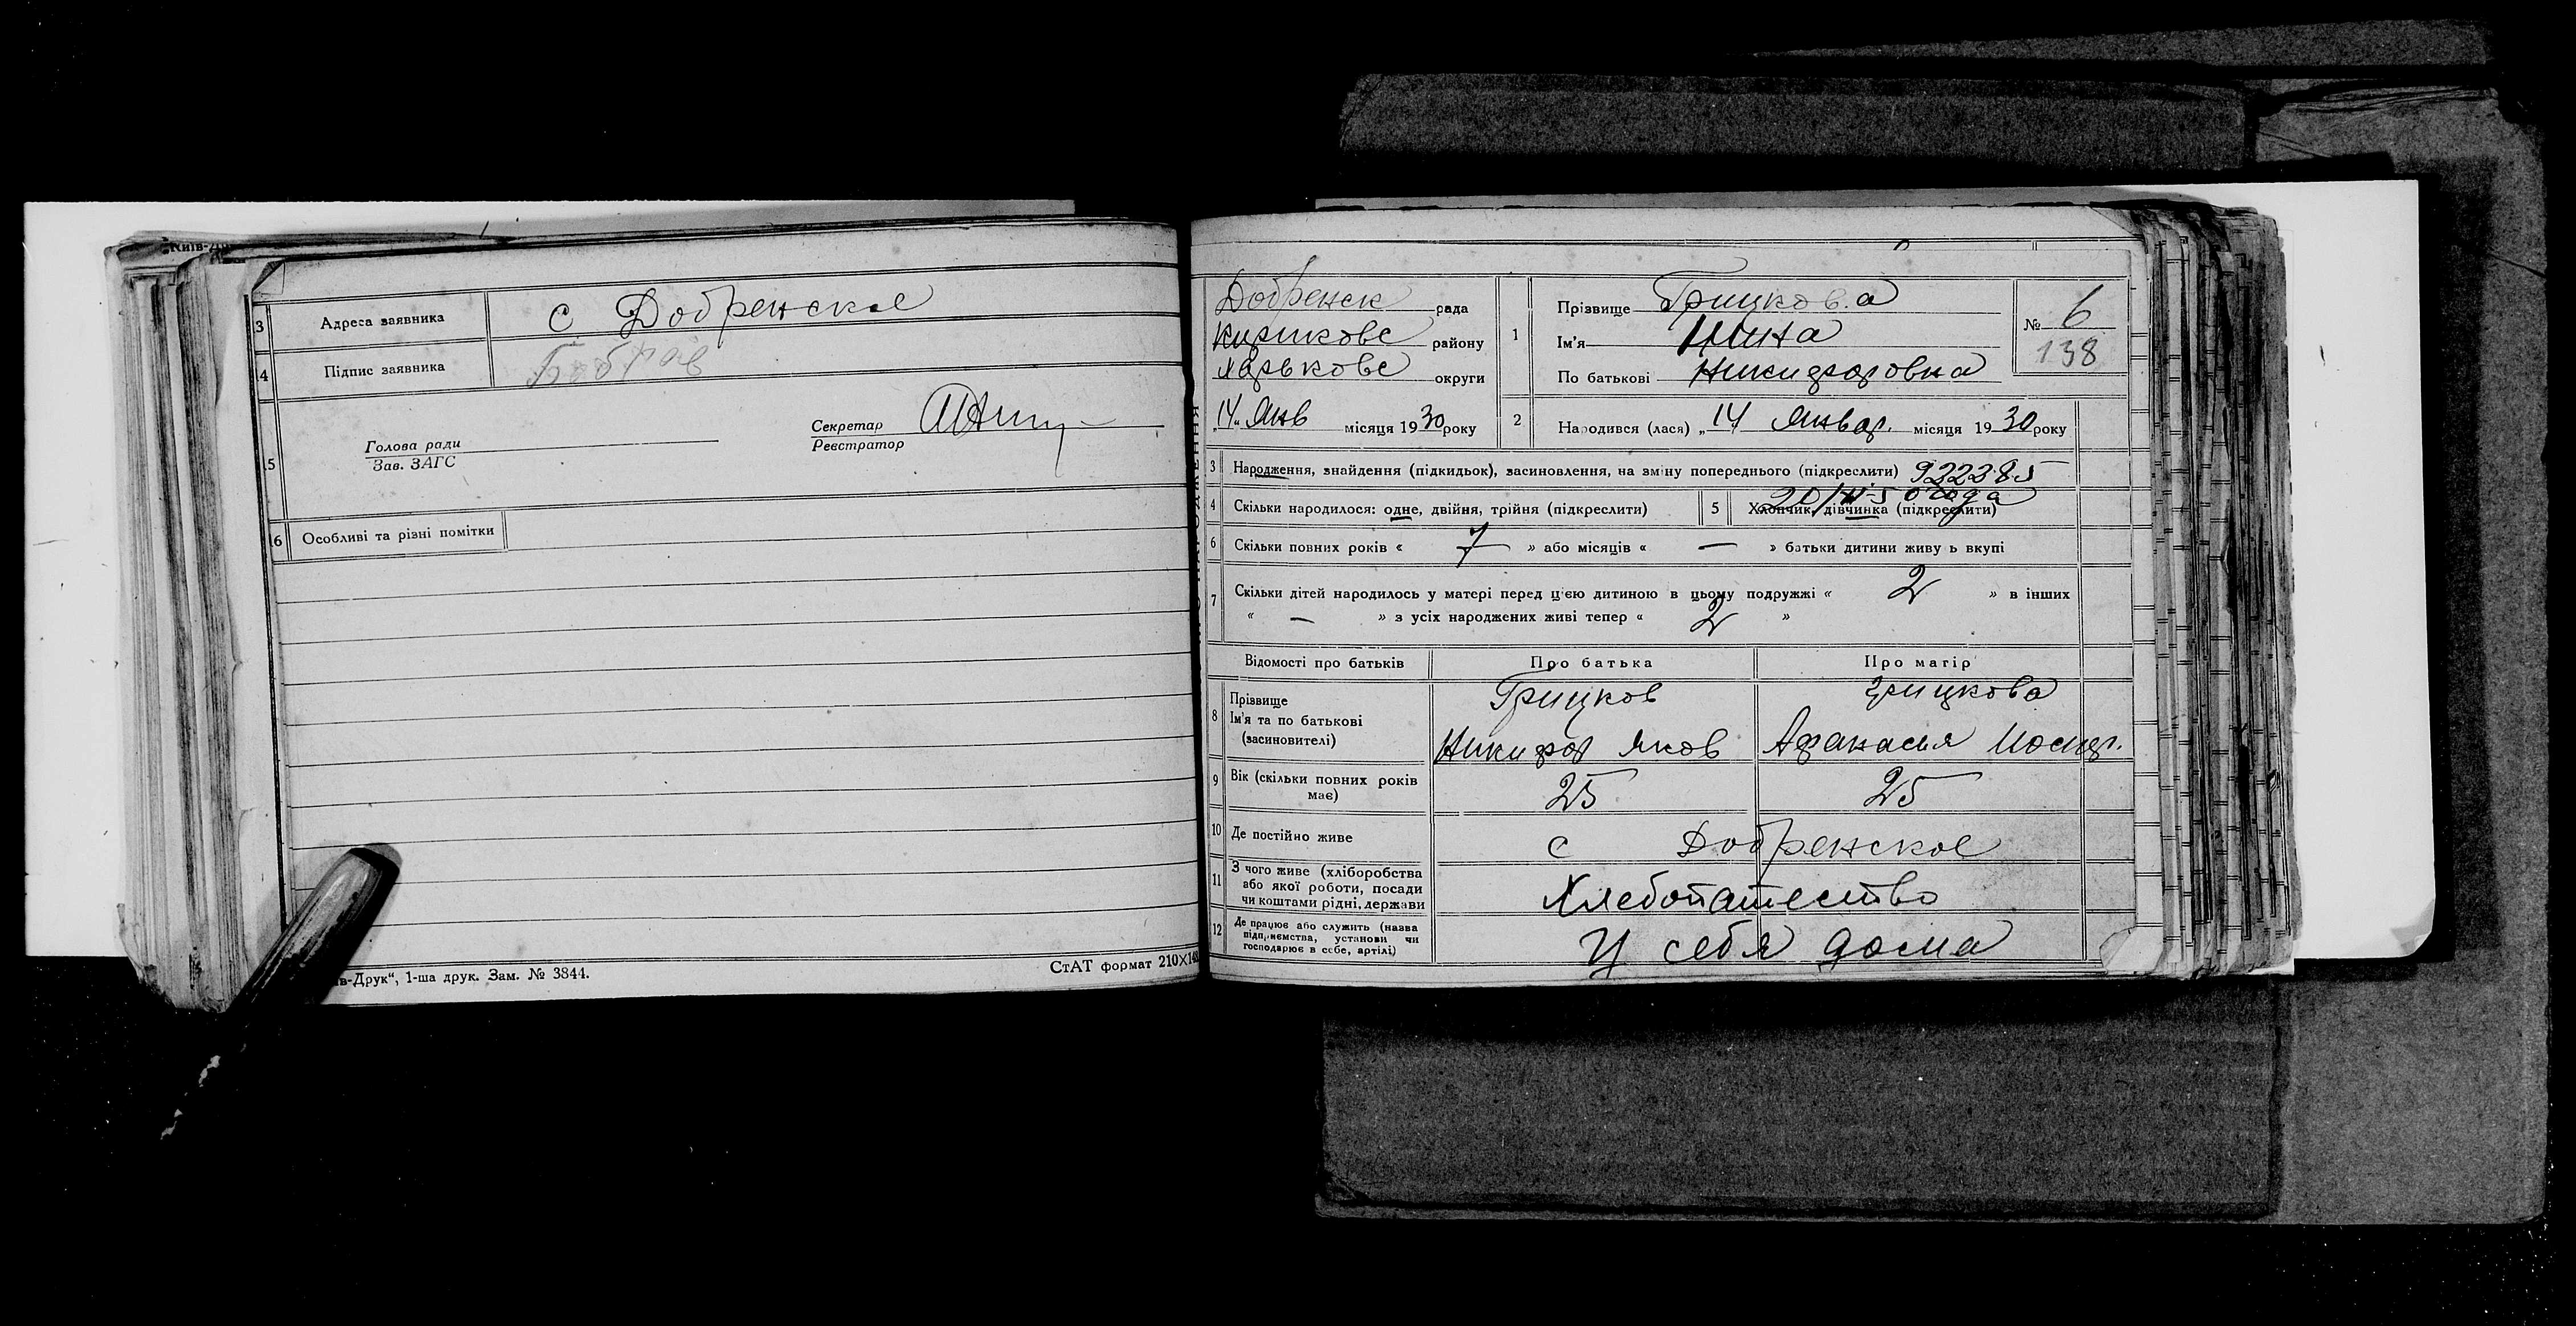 Київ-Др
3 Адреса заявника с Добренское
4 Підпис заявника
5 Голова ради
Зав. ЗАГС
Секретар
Реєстратор
6 Особливі та різні помітки
ів-Друк“, 1-ша друк. Зам. № 3844.
СтАТ формат 210×148
Добренск рада
район у
Харькове округи
„14„ Янв місяця 1930 року
1 Прізвище Грицкова
Ім'я Нина
По батькові Никифоровна
№ 6
138
2 Народився (лася) „14 Январ. місяця 1930 року
3 Народження, знайдення (підкидьок), засиновлення, на зміну попереднього (підкреслити) 922285
20/XI-50 года
4 Скільки народилося: одне, двійня, трійня (підкреслити)
5 Хлопчик, дівчинка (підкреслити)
6 Скільки повних років « 7 » або місяців « — » батьки дитини живуть вкупі
7 Скільки дітей народилось у матері перед цією дитиною в цьому подружжі « 2 » в інших
« — » з усіх народжених живі тепер « 2 »
Відомості про батьків Про батька Про матір
8 Прізвище
Ім'я та по батькові
(засиновителі)
Грицков
Никифор Яков
Грицкова
Афанасия Иосиф.
9 Вік (скільки повних років має) 25 25
10 Де постійно живе с Добренское
11 З чого живе (хліборобства
або якої роботи, посади
чи коштами рідні, держави
Хлебопашество
12 Де працює або служить (назва
підприємства, установи чи
господарює в себе, артілі)
У себя дома